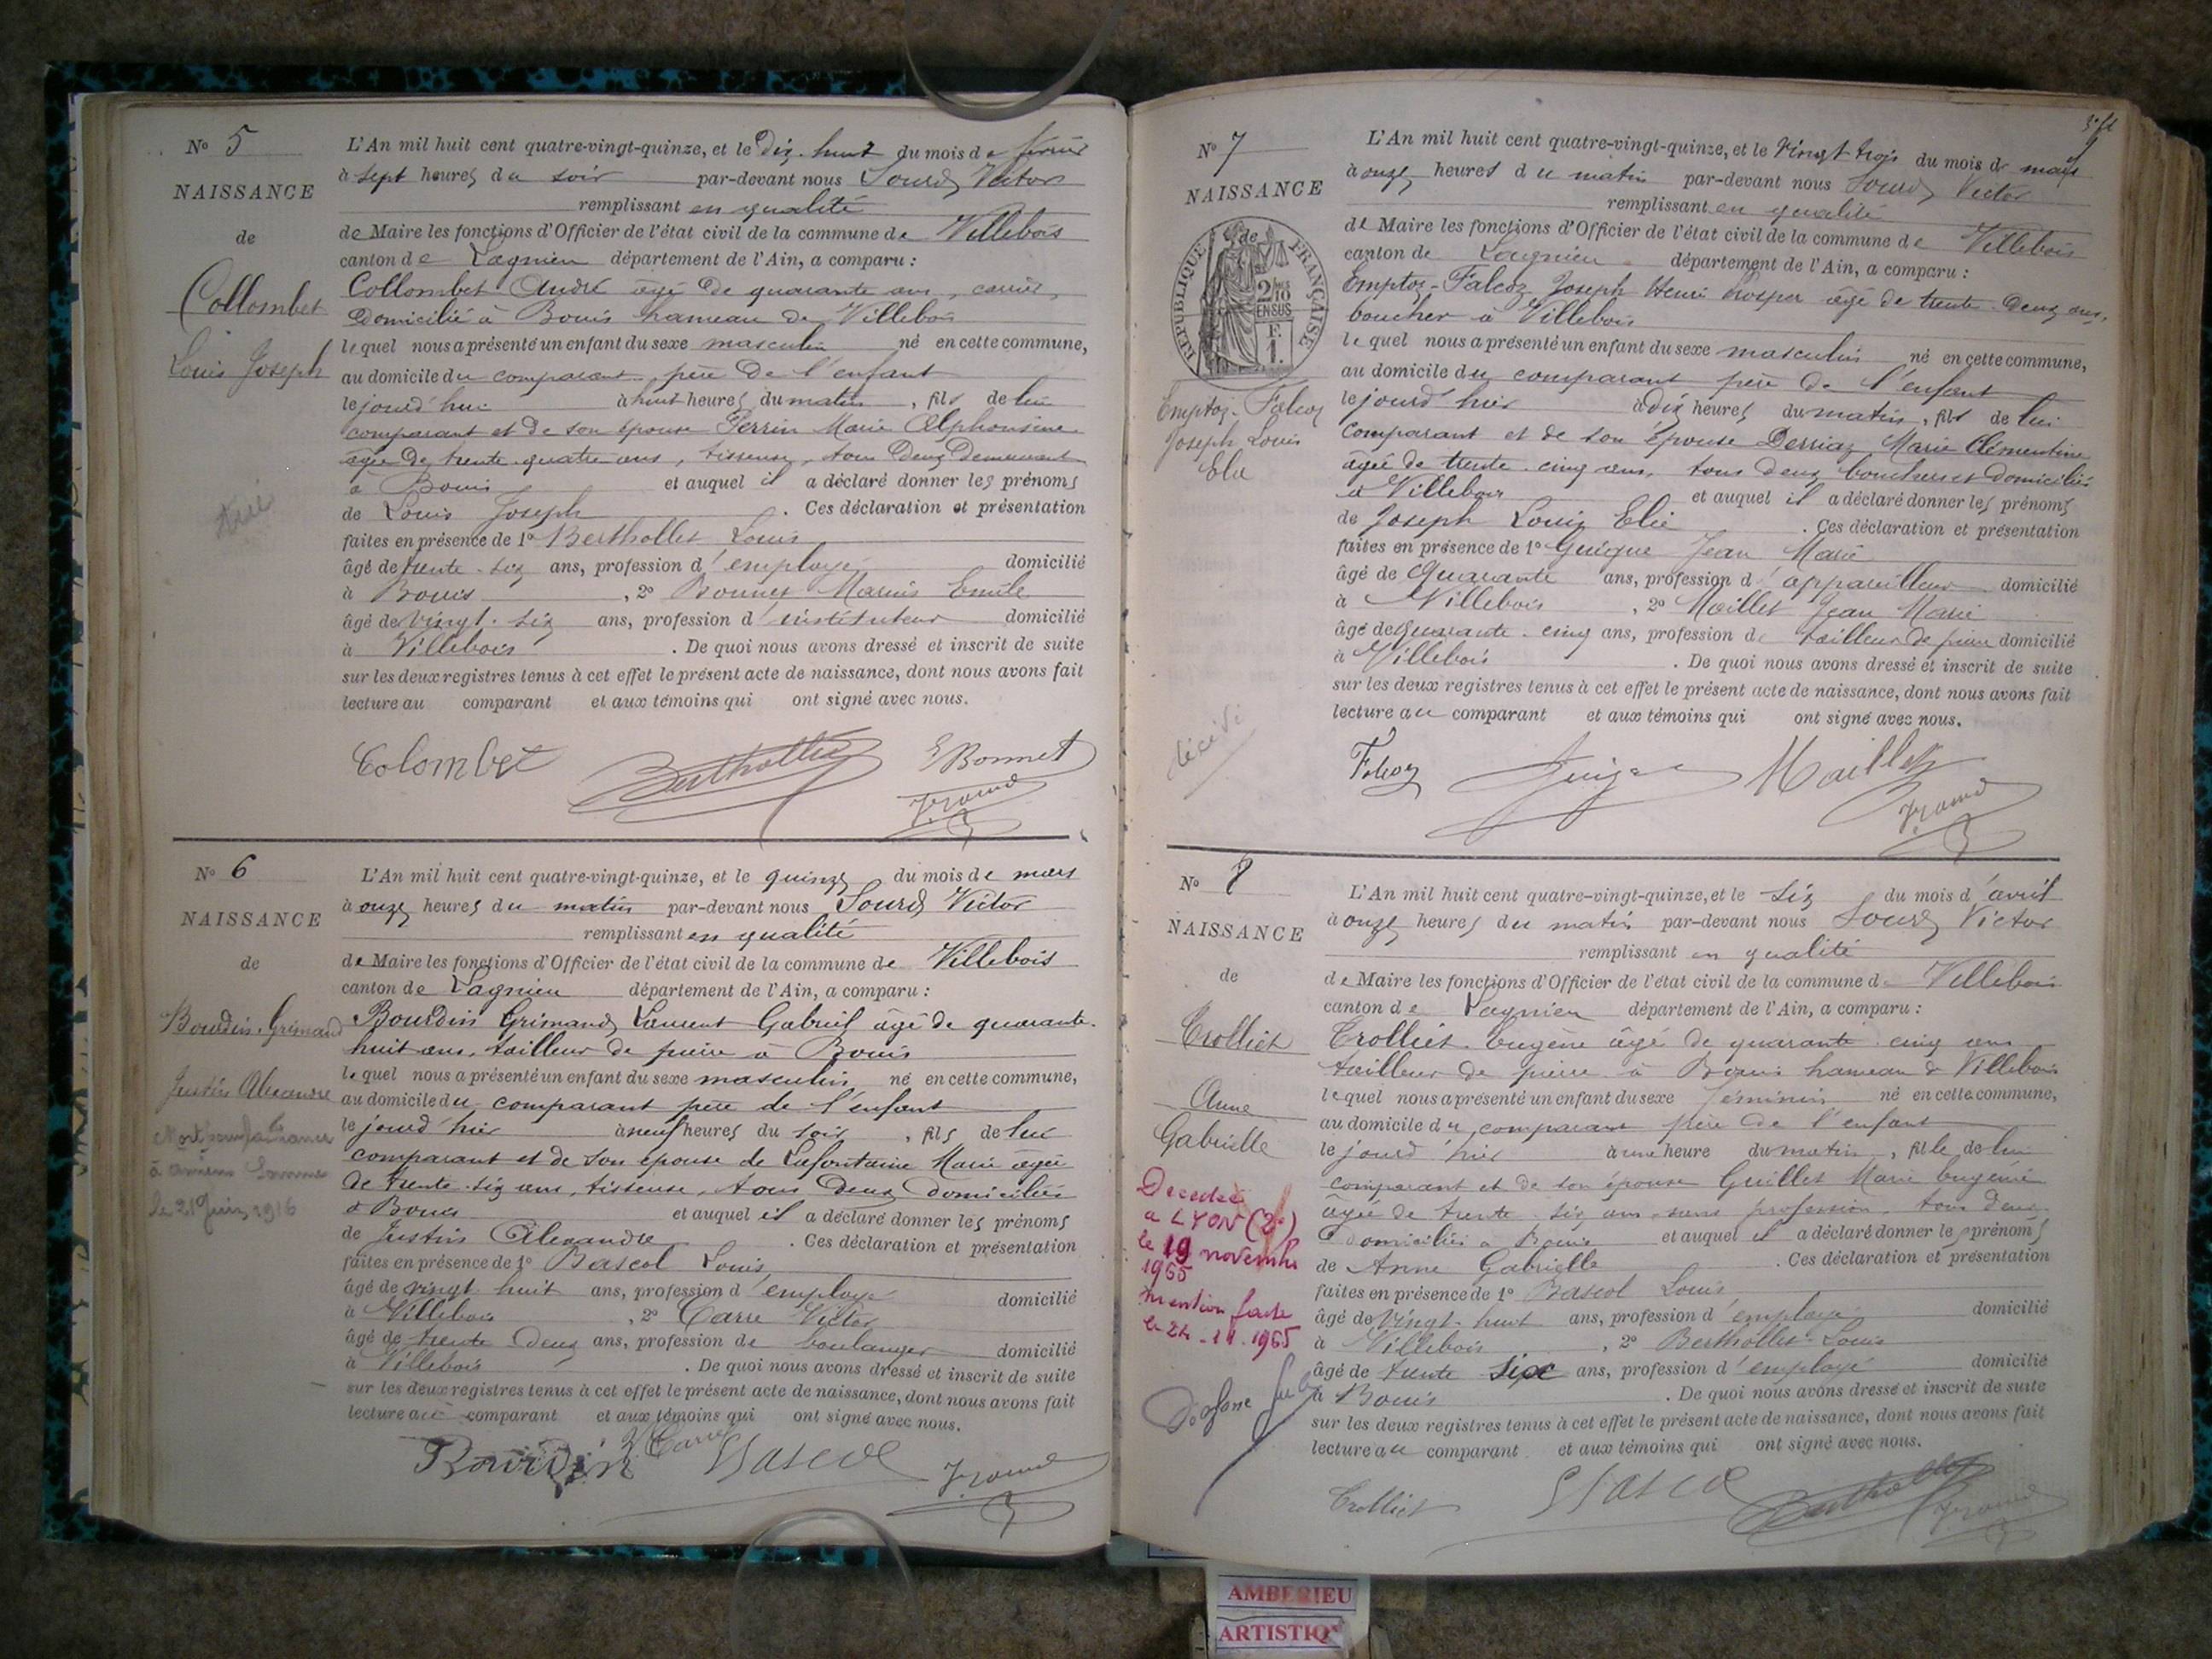 N° 5
NAISSANCE
de
Collombet
Louis Joseph
tué
L'An mil huit cent quatre-vingt-quinze, et le Dix-huit du mois de février
à sept heures du soir par-devant nous Sourd Victor
remplissant en qualité
de Maire les fonctions d'Officier de l'état civil de la commune de Villebois
canton de Lagnieu département de l'Ain, a comparu :
Collombet André âgé de quarante ans, carrier,
Domicilié à Bouis hameau de Villebois
lequel nous a présenté un enfant du sexe masculin né en cette commune,
au domicile du comparant père de l'enfant
le jourd'hui à huit heures du matin, fils de lui
comparant et de son épouse Perrin Marie Alphonsine
âgée de trente-quatre ans, tisseuse, tous Deux Demeurant
à Bouis et auquel il a déclaré donner les prénoms
de Louis Joseph. Ces déclaration et présentation
faites en présence de 1° Berthollet Louis
âgé de trente-six ans, profession d'employé domicilié
à Bouis, 2° Bonnet Marius Emile
âgé de vingt-six ans, profession d'instituteur domicilié
à Villebois. De quoi nous avons dressé et inscrit de suite
sur les deux registres tenus à cet effet le présent acte de naissance, dont nous avons fait
lecture au comparant et aux témoins qui ont signé avec nous.
Colombet Berthollet E Bonnet
V. Sourd
N° 6
NAISSANCE
de
Bourdin-Grimaud
Justin Alexandre
Mort pour la France
à Amiens Somme
le 21 Juin 1916
L'An mil huit cent quatre-vingt-quinze, et le quinze du mois de mars
à onze heures du matin par-devant nous Sourd Victor
remplissant en qualité
de Maire les fonctions d'Officier de l'état civil de la commune de Villebois
canton de Lagnieu département de l'Ain, a comparu :
Bourdin Grimaud Laurent Gabriel âgé de quarante-
huit ans, tailleur de pierre à Bouis
lequel nous a présenté un enfant du sexe masculin né en cette commune,
au domicile du comparant père de l'enfant
le jourd'hier à neuf heures du soir, fils de lui
comparant et de son épouse de Lafontaine Marie âgée
de trente-six ans, tisseuse, tous Deux domiciliés
à Bouis et auquel il a déclaré donner les prénoms
de Justin Alexandre. Ces déclaration et présentation
faites en présence de 1° Bascol Louis
âgé de vingt huit ans, profession d'employé domicilié
à Villebois, 2° Carre Victor
âgé de trente Deux ans, profession de boulanger domicilié
à Villebois. De quoi nous avons dressé et inscrit de suite
sur les deux registres tenus à cet effet le présent acte de naissance, dont nous avons fait
lecture au comparant et aux témoins qui ont signé avec nous.
Bourdin V Carre Bascol V. Sourd
N° 7
NAISSANCE
de
RÉPUBLIQUE FRANÇAISE
2/10
EN SUS
F.
1.
Emptoz-Falcoz
Joseph Louis
Elie
décédé
L'An mil huit cent quatre-vingt-quinze, et le vingt-trois du mois de mars
à onze heures du matin par-devant nous Sourd Victor
remplissant en qualité
de Maire les fonctions d'Officier de l'état civil de la commune de Villebois
canton de Lagnieu département de l'Ain, a comparu :
Emptoz-Falcoz Joseph Henri Prosper âgé de trente-Deux ans,
boucher à Villebois
lequel nous a présenté un enfant du sexe masculin né en cette commune,
au domicile du comparant père de l'enfant
le jourd'hier à dix heures du matin, fils de lui
comparant et de son épouse Derriaz Marie Clémentine
âgée de trente-cinq ans, tous deux bouchers et domiciliés
à Villebois et auquel il a déclaré donner les prénoms
de Joseph Louis Elie. Ces déclaration et présentation
faites en présence de 1° Guigue Jean Marie
âgé de Quarante ans, profession d'appareilleur domicilié
à Villebois, 2° Maillet Jean Marie
âgé de Quarante-cinq ans, profession de tailleur de pierre domicilié
à Villebois. De quoi nous avons dressé et inscrit de suite
sur les deux registres tenus à cet effet le présent acte de naissance, dont nous avons fait
lecture au comparant et aux témoins qui ont signé avec nous.
Falcoz Guigue Maillet
V. Sourd
N° 8
NAISSANCE
de
Trolliet
Anne
Gabrielle
Décédée
à LYON (2e)
le 19 novembre
1965
mention faite
le 24-11-1965
L'An mil huit cent quatre-vingt-quinze, et le six du mois d'avril
à onze heures du matin par-devant nous Sourd Victor
remplissant en qualité
de Maire les fonctions d'Officier de l'état civil de la commune de Villebois
canton de Lagnieu département de l'Ain, a comparu :
Trolliet Eugène âgé de quarante-cinq ans
tailleur de pierre à Bouis hameau de Villebois
lequel nous a présenté un enfant du sexe féminin né en cette commune,
au domicile du comparant père de l'enfant
le jourd'hier à une heure du matin, fille de lui
comparant et de son épouse Guillet Marie Eugénie
âgée de trente-six ans, sans profession, tous deux
domiciliés à Bouis et auquel il a déclaré donner les prénoms
de Anne Gabrielle. Ces déclaration et présentation
faites en présence de 1° Bascol Louis
âgé de vingt-huit ans, profession d'employé domicilié
à Villebois, 2° Berthollet Louis
âgé de trente six ans, profession d'employé domicilié
à Bouis. De quoi nous avons dressé et inscrit de suite
sur les deux registres tenus à cet effet le présent acte de naissance, dont nous avons fait
lecture au comparant et aux témoins qui ont signé avec nous.
Trolliet Bascol Berthollet V. Sourd
AMBERIEU
ARTISTIQ